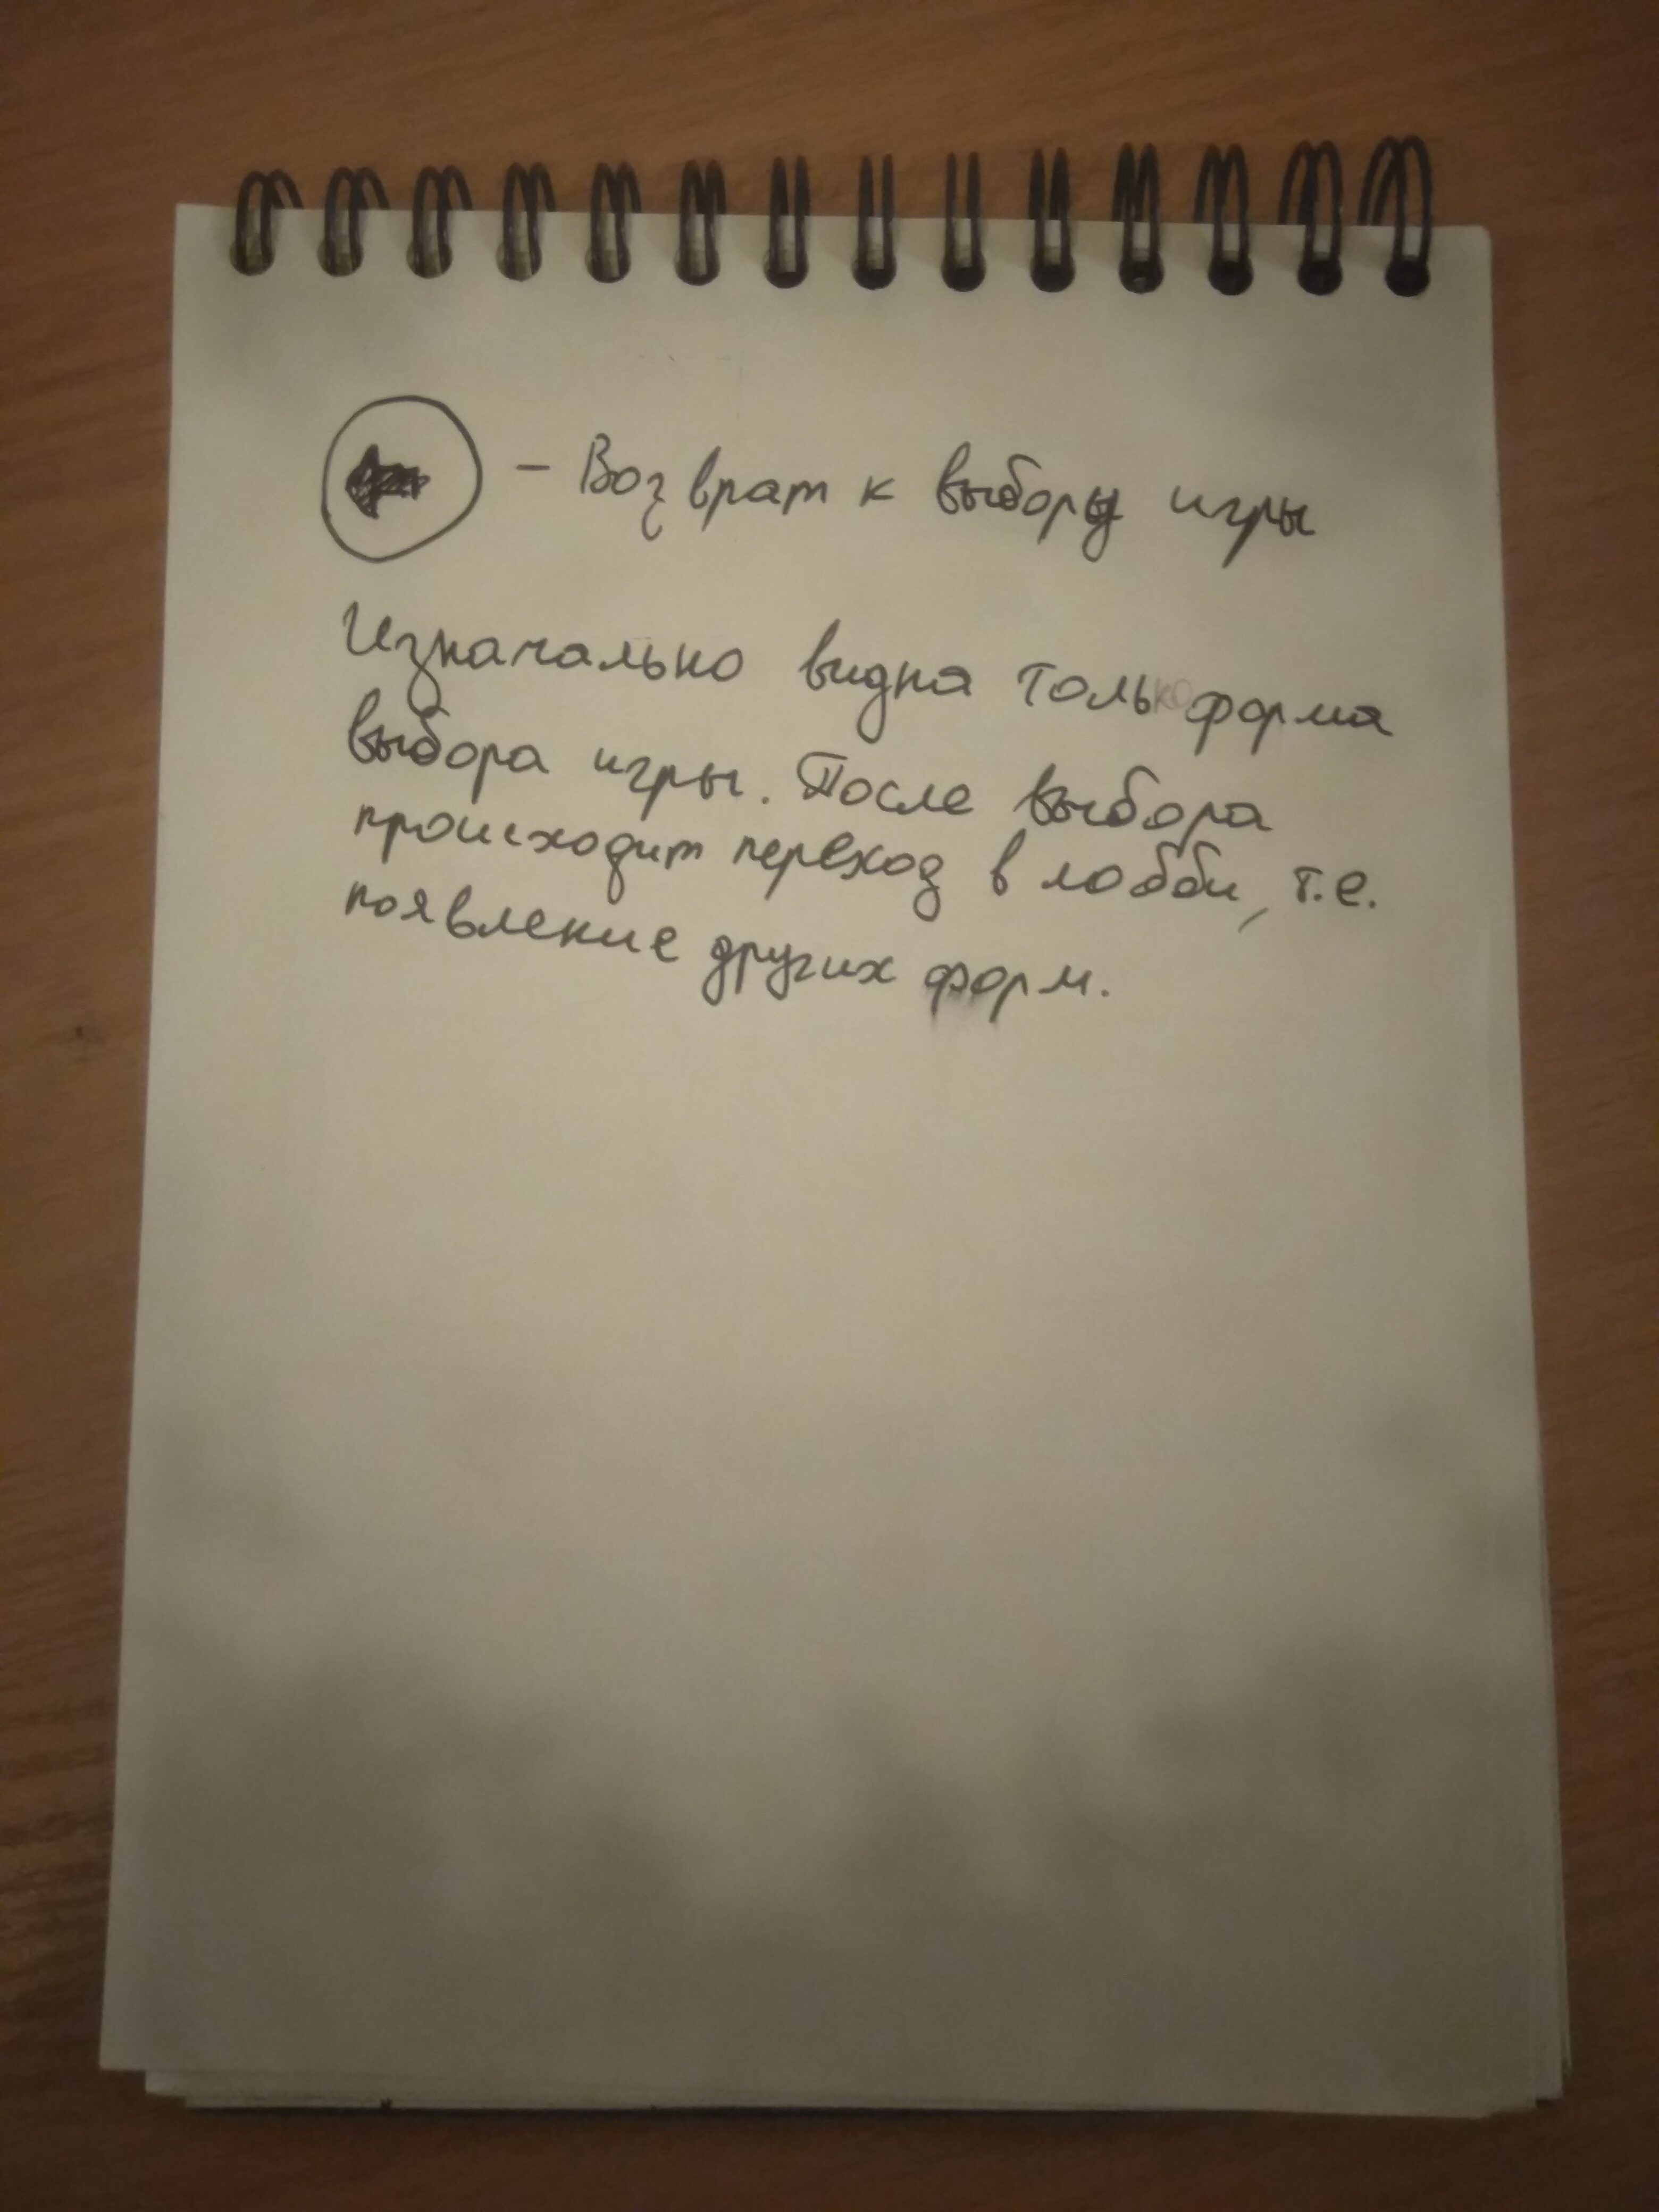 - Возврат к выбору игры
Изначально видна только форма
выбора игры. После выбора
происходит переход в лобби, т.е.
появление других форм.